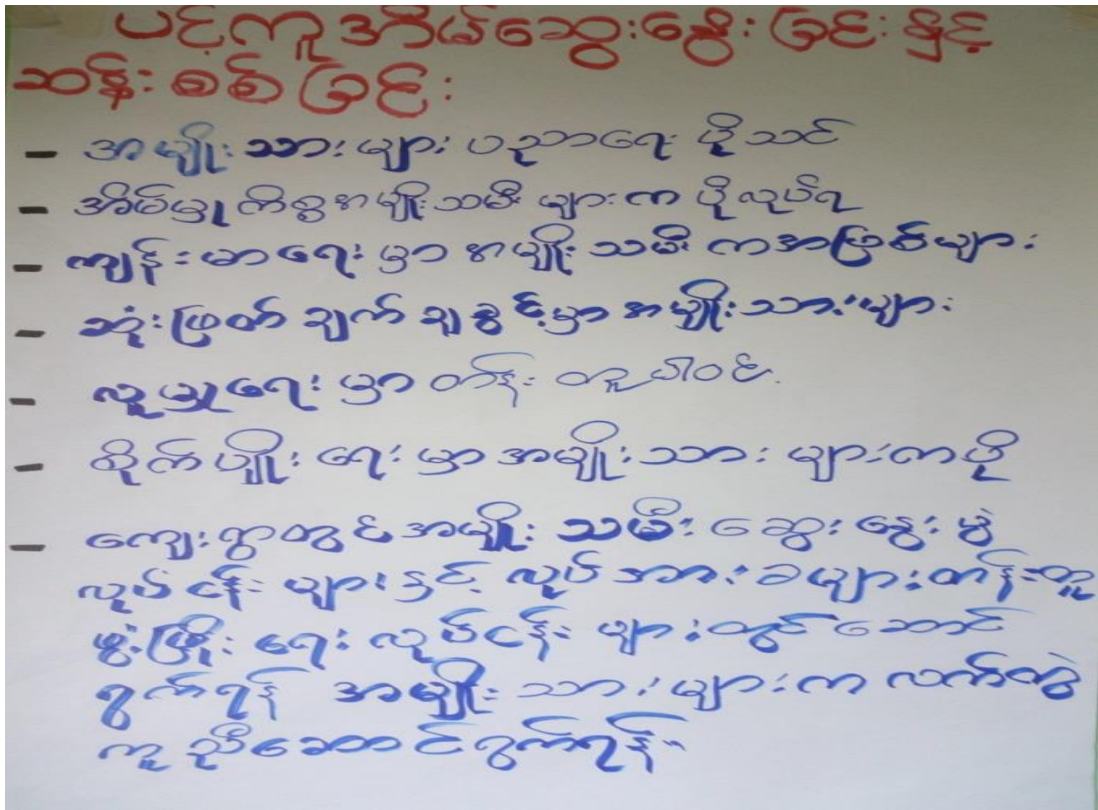 ပင့်ကူအိမ်ဆွေးနွေးခြင်းနှင့်
ဆန်းစစ်ခြင်း
- အမျိုးသားများ ပညာရေး ပိုသင်
- အိမ်မှုကိစ္စအမျိုးသမီးများက ပိုလုပ်ရ
- ကျန်းမာရေးမှာ အမျိုးသမီးကအဖြစ်များ
- ဆုံးဖြတ်ချက်ချခွင့်မှာအမျိုးသားများ
- လူမှုရေးမှာ တန်းတူပါဝင်
- စိုက်ပျိုးရေးမှာအမျိုးသားများကပို
- ကျေးရွာတွင်အမျိုးသမီးဆွေးနွေးပွဲ
လုပ်ငန်းများနှင့် လုပ်အားခများတန်းတူ
ဖွံ့ဖြိုးရေးလုပ်ငန်းများတွင်ဆောင်
ရွက်ရန် အမျိုးသားများက လက်တွဲ
ကူညီဆောင်ရွက်ရန်။